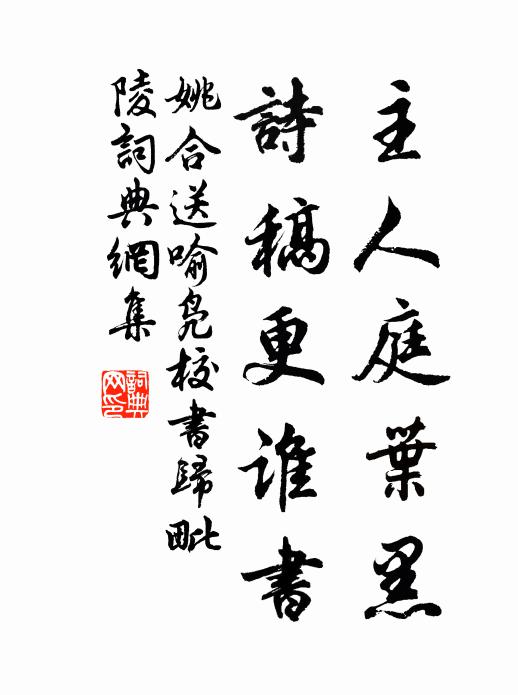 主人庭葉黑
詩稿更誰書
姚合送喻鳧校書歸毗
陵詞典網集
詞典网印